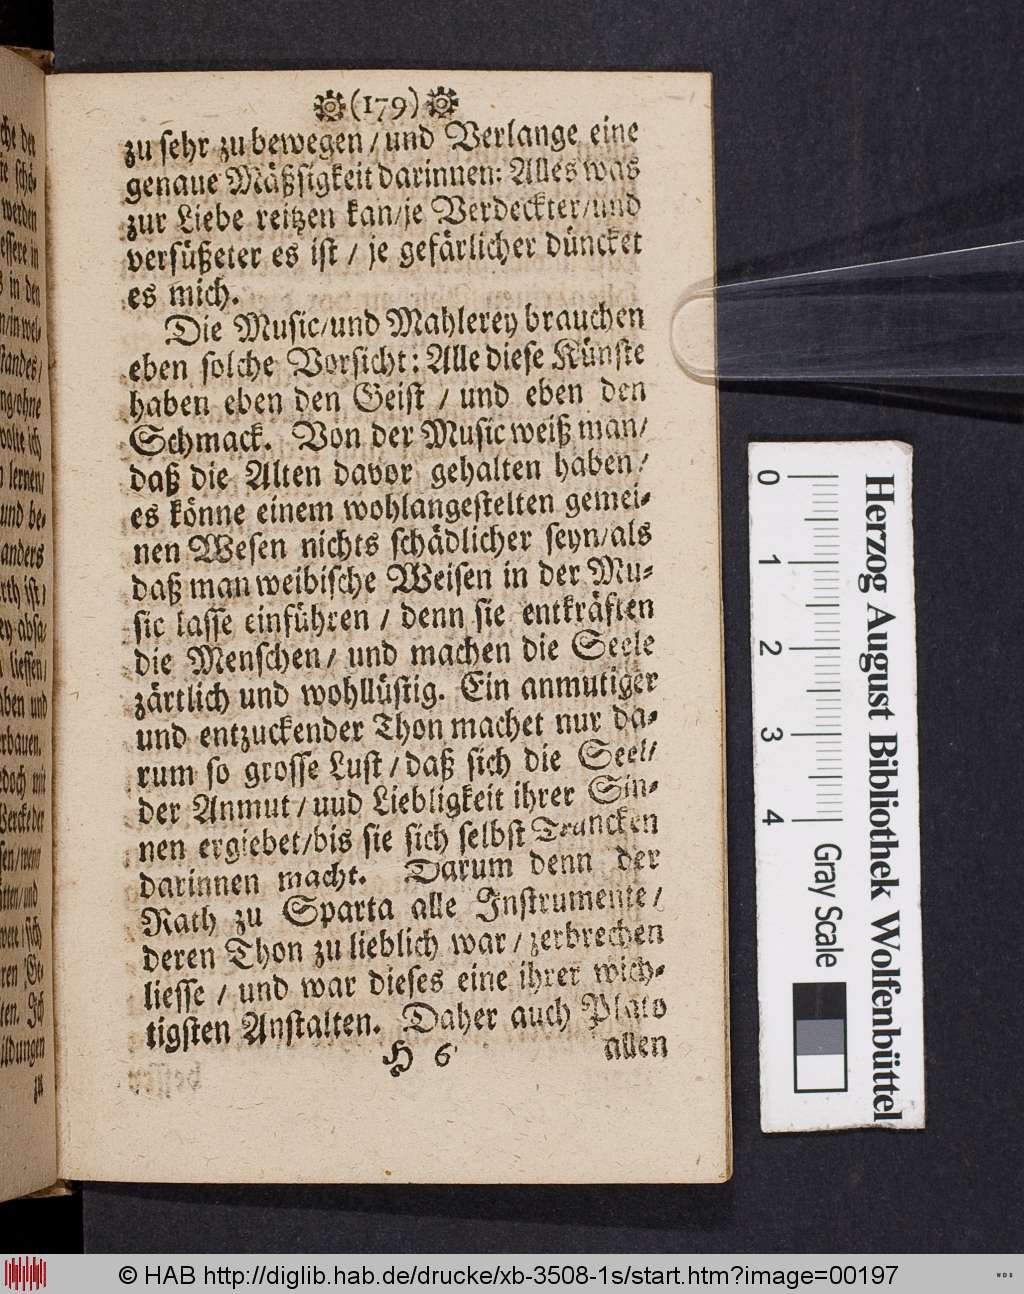 (179)
zu sehr zu bewegen / und Verlange eine
genaue Mäßsigkeit darinnen: Alles was
zur Liebe reitzen kan/je Verdeckter/und
versüßeter es ist / je gefärlicher düncket
es mich.
Die Music/und Mahlerey brauchen
eben solche Vorsicht: Alle diese Künste
haben eben den Geist / und eben den
Schmack. Von der Music weiß man/
daß die Alten davor gehalten haben/
es könne einem wohlangestelten gemei-
nen Wesen nichts schädlicher seyn/als
daß man weibische Weisen in der Mu-
sic lasse einführen / denn sie entkräften
die Menschen/ und machen die Seele
zärtlich und wohllüstig. Ein anmutiger
und entzuckender Thon machet nur da-
rum so grosse Lust / daß sich die Seel/
der Anmut / uud Liebligkeit ihrer Sin-
nen ergiebet/bis sie sich selbst Truncken
darinnen macht. Darum denn der
Rath zu Sparta alle Instrumente/
deren Thon zu lieblich war / zerbrechen
liesse / und war dieses eine ihrer wich-
tigsten Anstalten. Daher auch Plato
H 6
allen
che der
werden
essere in
s in den
standes/
ng/ohne
wolte ich
lernen/
und be-
anders
rth ist/
liessen/
aben und
rbauen.
edoch mit
Wercke der
ildungen
zu
0 1 2 3 4
Herzog August Bibliothek Wolfenbüttel
Gray Scale
© HAB http://diglib.hab.de/drucke/xb-3508-1s/start.htm?image=00197